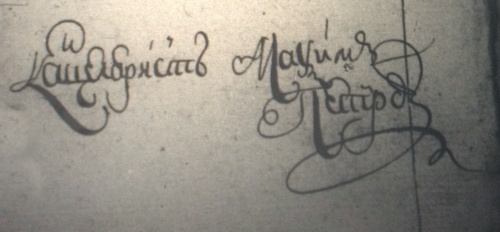 Канцеляристъ Маѯимъ
Петров